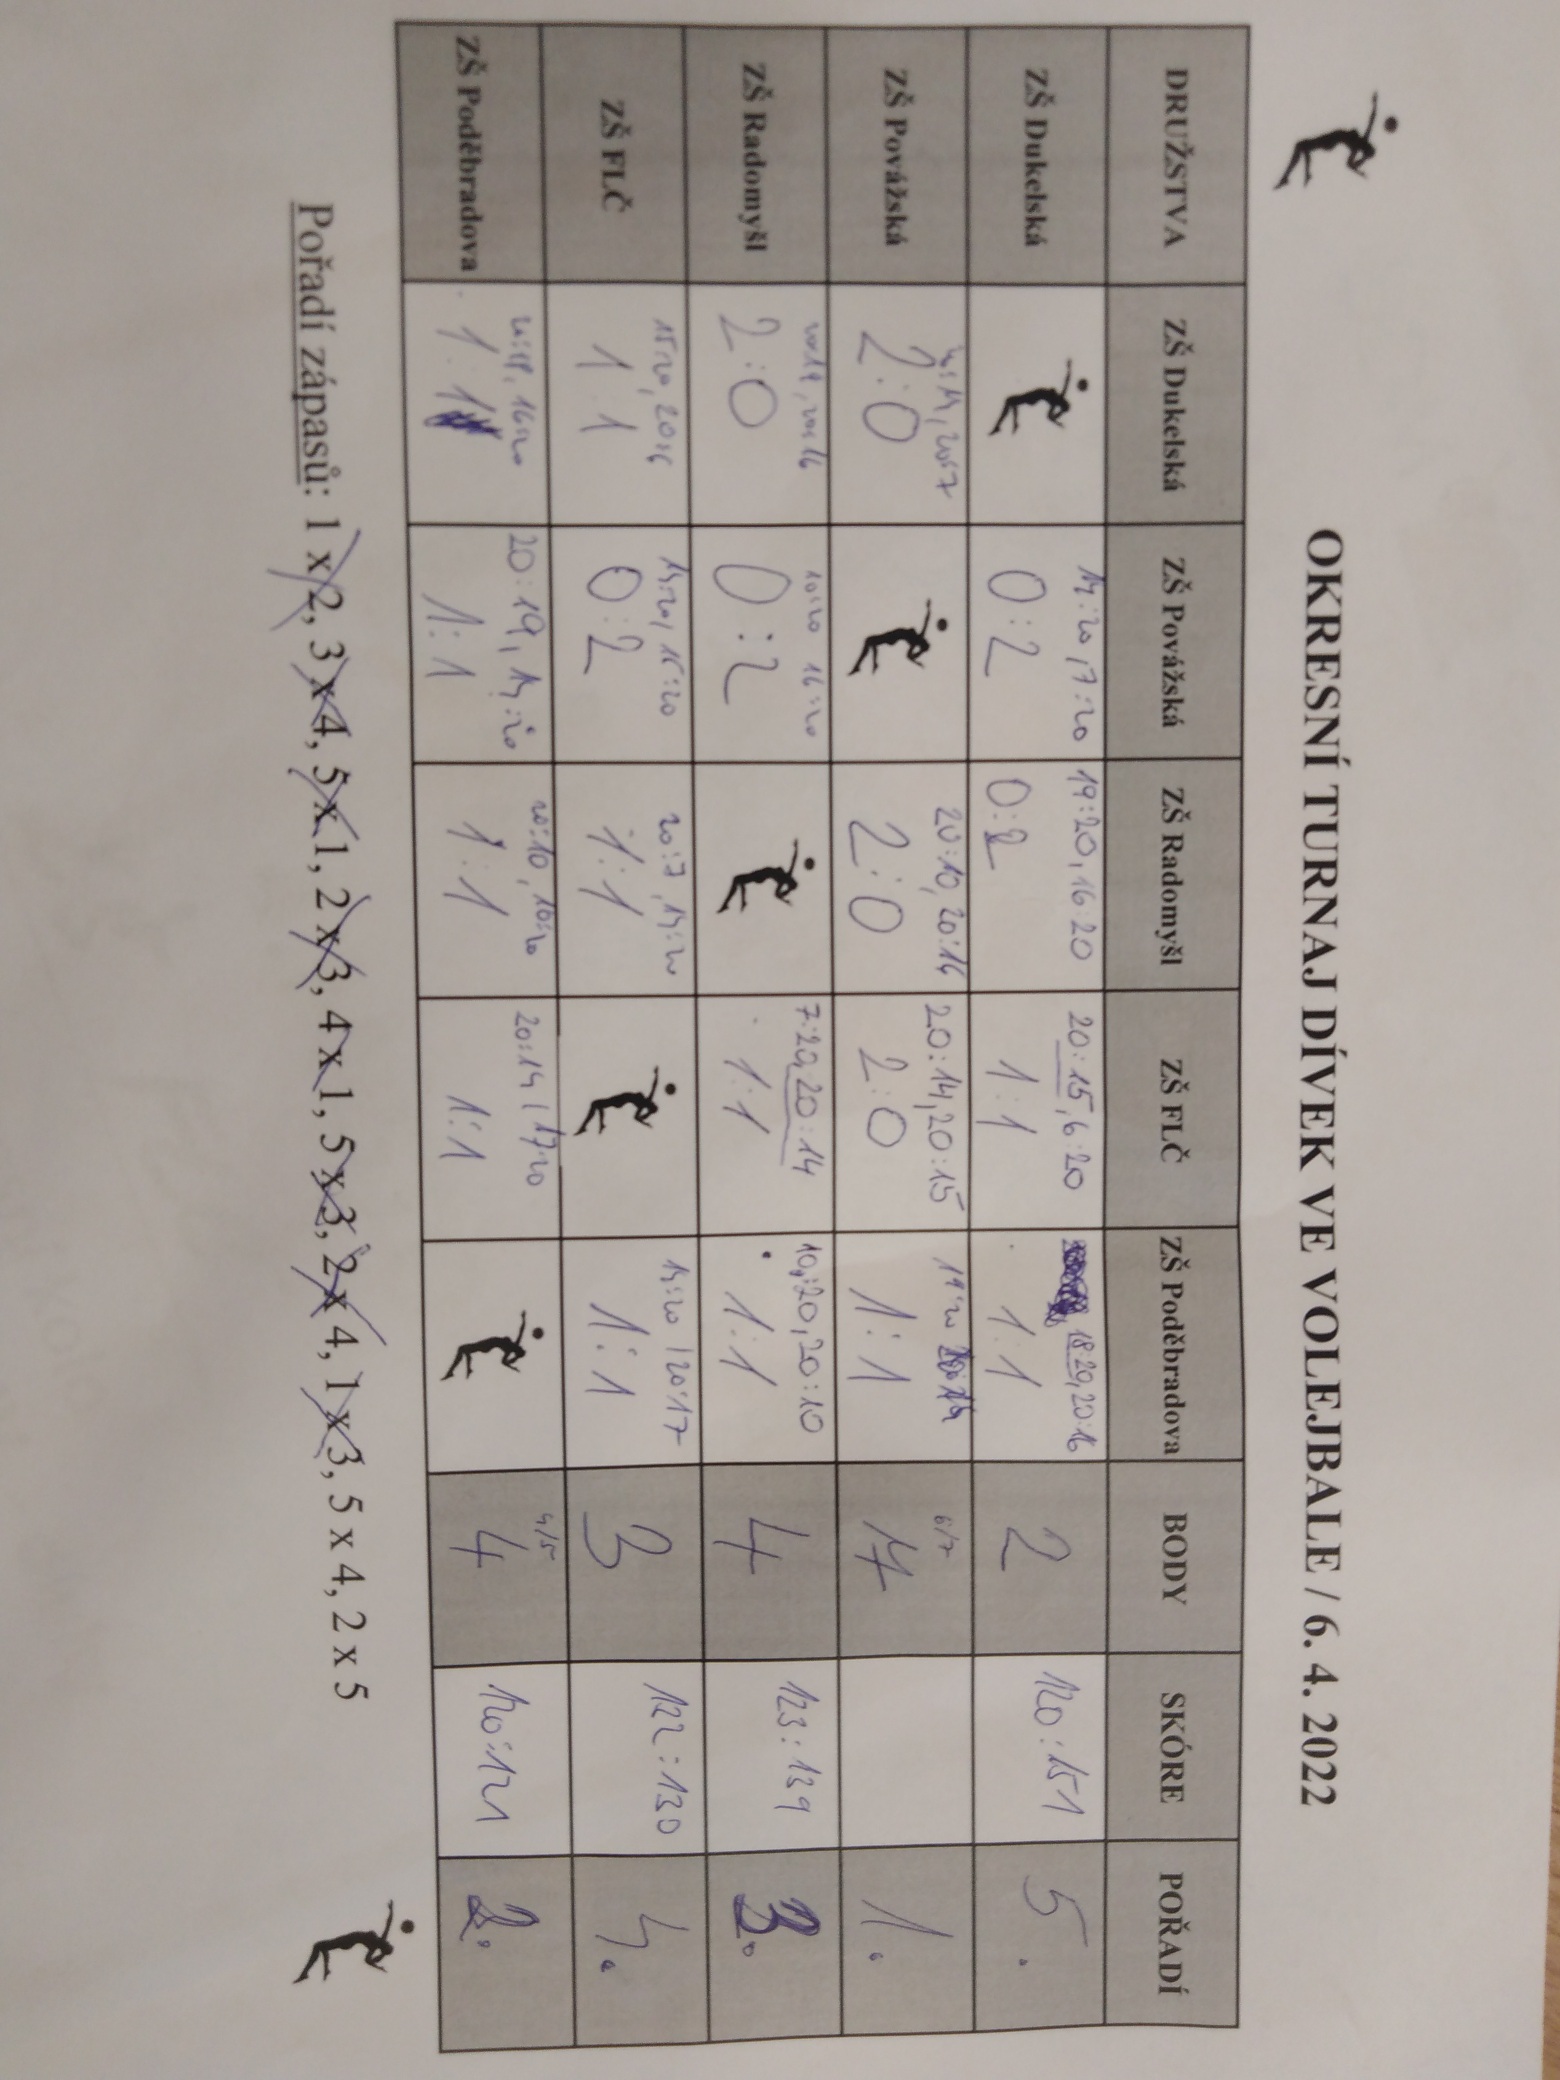 OKRESNÍ TURNAJ DÍVEK VE VOLEJBALE / 6. 4. 2022
DRUŽSTVA ZŠ Dukelská ZŠ Povážská ZŠ Radomyšl ZŠ FLČ ZŠ Poděbradova BODY SKÓRE POŘADÍ
14:20, 7:20 19:20, 16:20 20:15, 6:20 18:20, 20:16
ZŠ Dukelská 0:2 0:2 1:1 1:1 2 120:151 5.
20:14, 20:7 20:10, 20:16 20:14, 20:15 19:20 6/7
ZŠ Povážská 2:0 2:0 2:0 1:1 7 1.
20:19, 20:16 10:20 16:20 7:20, 20:14 10:20, 20:10
ZŠ Radomyšl 2:0 0:2 1:1 1:1 4 123:139 3.
15:20, 20:6 14:20, 15:20 20:7, 14:20 14:20 20:17
ZŠ FLČ 1:1 0:2 1:1 1:1 3 122:130 4.
20:18, 16:20 20:19, 14:20 20:10, 10:20 20:14, 17:20 4/5
ZŠ Poděbradova 1:1 1:1 1:1 1:1 4 2.
Pořadí zápasů: 1 x 2, 3 x 4, 5 x 1, 2 x 3, 4 x 1, 5 x 3, 2 x 4, 1 x 3, 5 x 4, 2 x 5